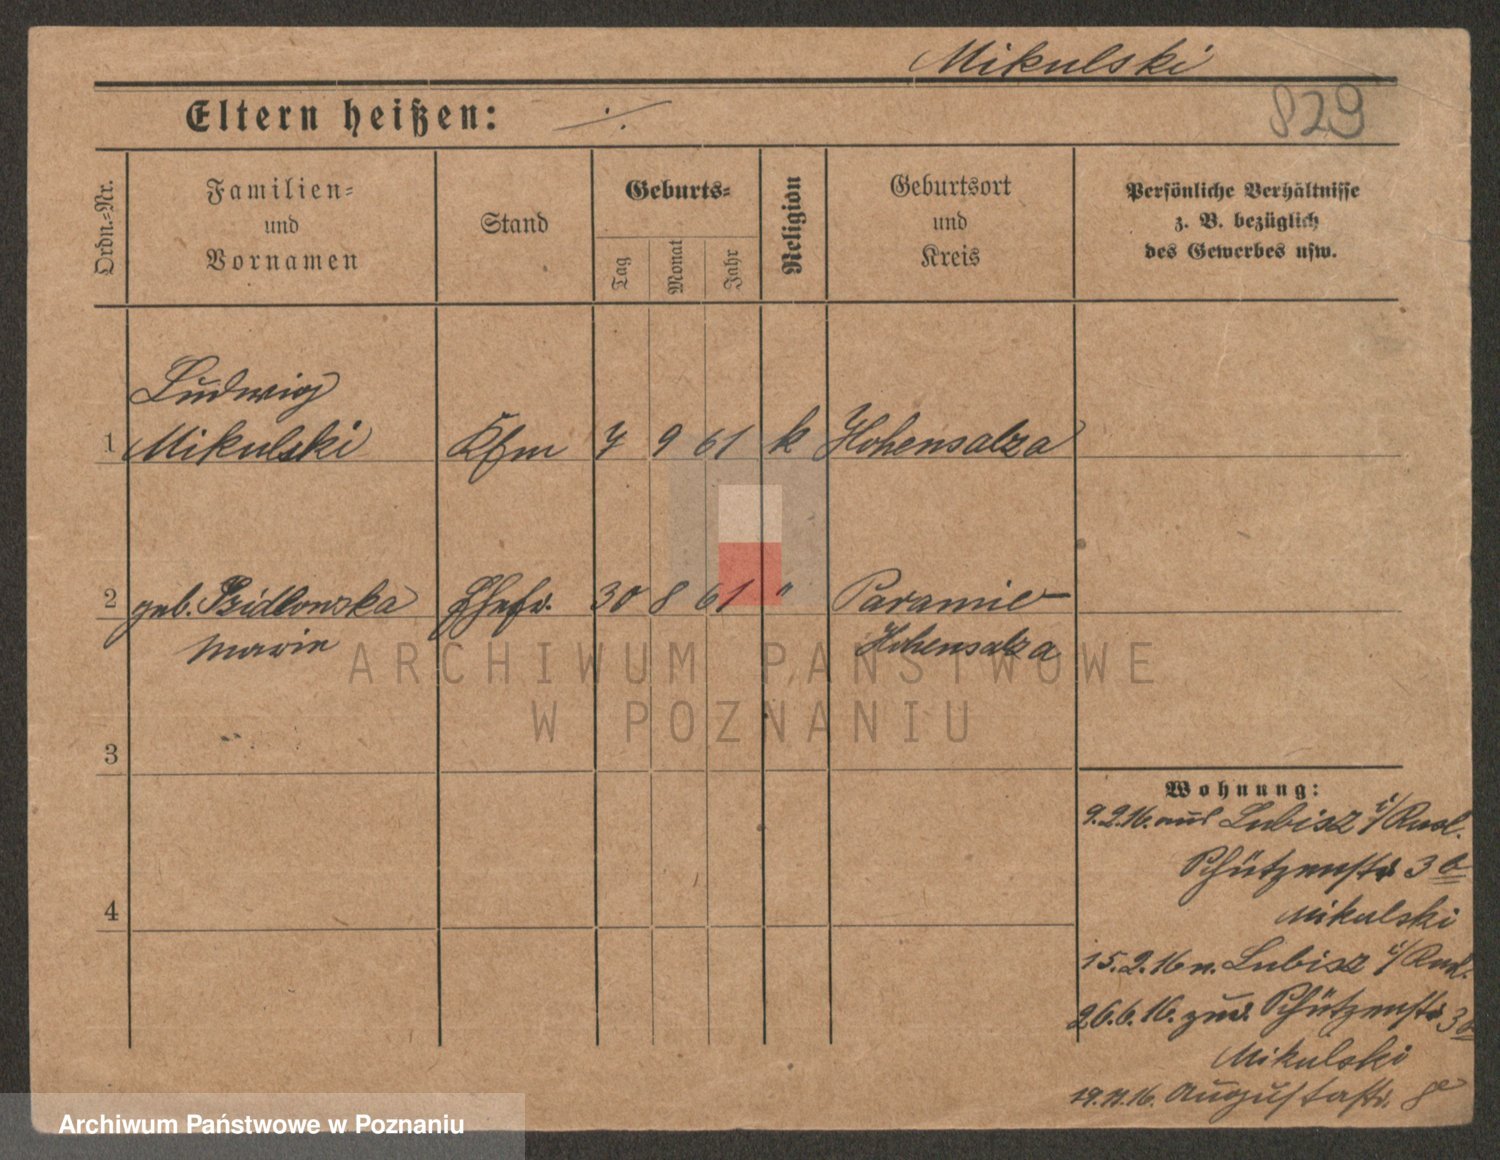 Mikulski
Eltern heißen: ./.
829
Ordn.=Nr.
Familien=
und
Vornamen
Stand
Geburts=
Tag
Monat
Jahr
Religion
Geburtsort
und
Kreis
Persönliche Verhältnisse
z. B. bezüglich
des Gewerbes usw.
Ludwig
1 Mikulski Kfm 7 9 61 k Hohensalza
2 geb. Szidlowska Ehefr. 30 8 61 " Paramie
Marie Hohensalza
ARCHIWUM PAŃSTWOWE
W POZNANIU
3
Wohnung:
9.2.16. aus Lubisz i/Russl.
Schützenstr 3
Mikulski
4
15.2.16 n. Lubisz i/Russl.
26.6.16. zur. Schützenstr 3
Mikulski
19.11.16. Augustastr. 8
Archiwum Państwowe w Poznaniu